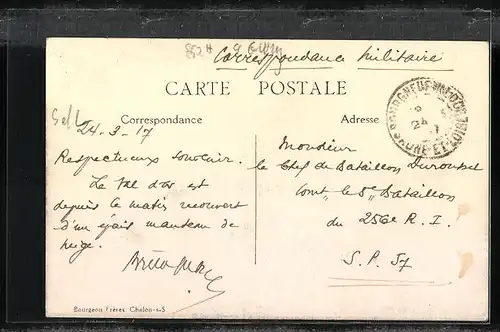 Correspondance Militaire
CARTE POSTALE
Correspondance
Adresse
24-3-17
Respectueux souvenir.
Le Val d'or est
depuis le matin recouvert
d'un épais manteau de
neige.
Monsieur
le Chef de Bataillon Durousset
Comt le 5e Bataillon
du 256e R. I.
S. P. 57
Bourgeon Frères Chalon-s-S